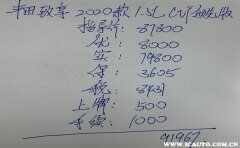 丰田致享2020款1.5L CVT 领先版
指导价: 87800
优: 8000
实: 79800
保: 3605
税: 8431
上牌: 500
手续: 1000
91967
WWW.1CAUTO.COM.CN